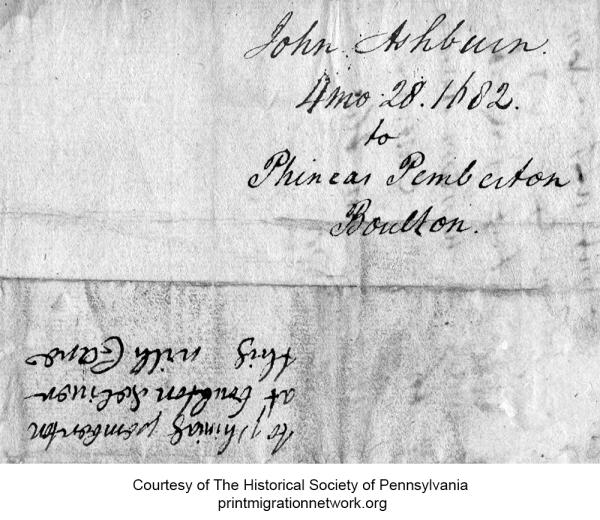 John Ashburn.
4mo 28. 1682.
to
Phineas Pemberton
Boulton.
to Phinias pemberton
at boulton deliver
this with Care
Courtesy of The Historical Society of Pennsylvania
printmigrationnetwork.org